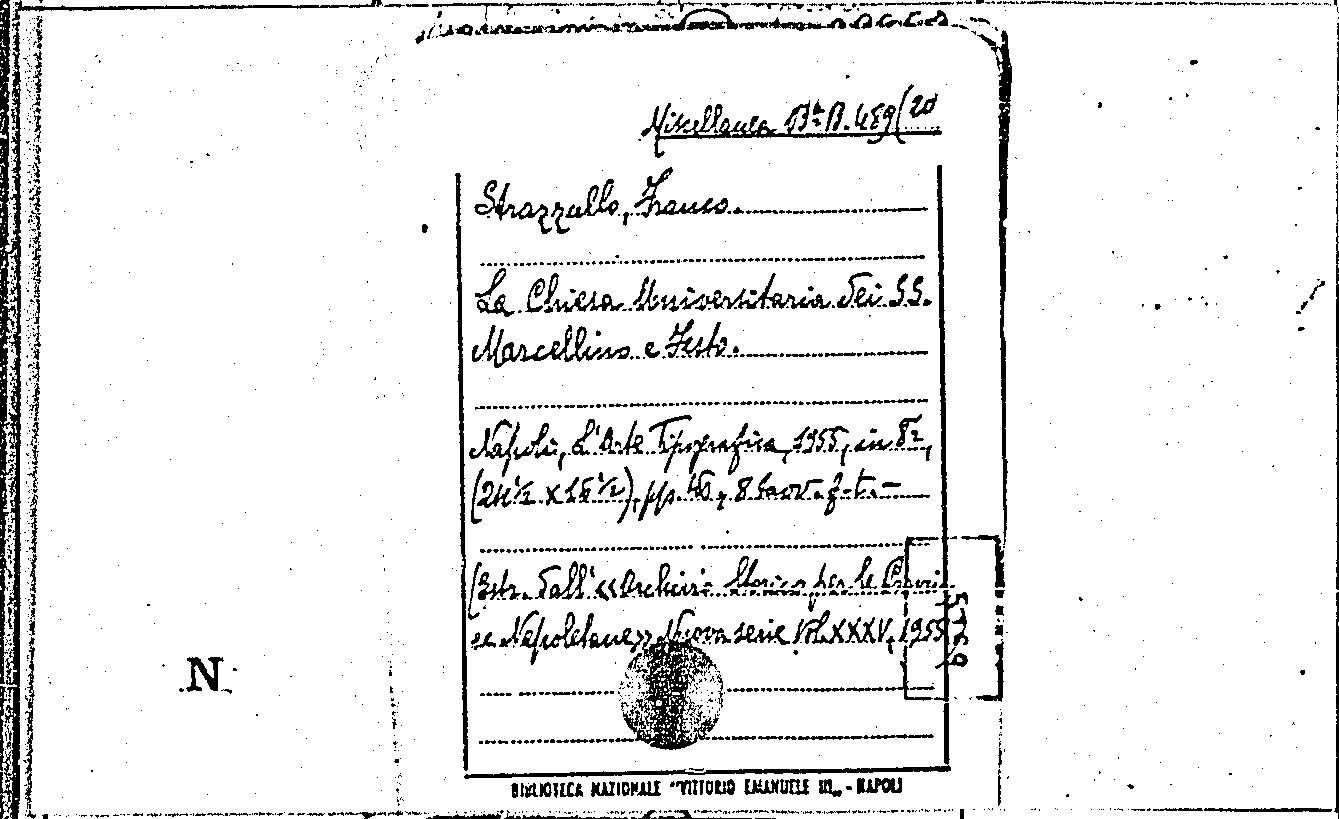 Miscellanea Bª B. 459(20
Strazzullo, Franco.
La Chiesa Universitaria dei SS.
Marcellino e Festo.
Napoli, L'Arte Tipografica, 1955, in 8º,
(24½ x 16½), pp. 40, 8 tavv. f.t.-
(Estr. dall' «Archivio Storico per le Provin
ce Napoletane» Nuova serie Vol. XXXV, 1955
N
BIBLIOTECA NAZIONALE "VITTORIO EMANUELE III„ - NAPOLI